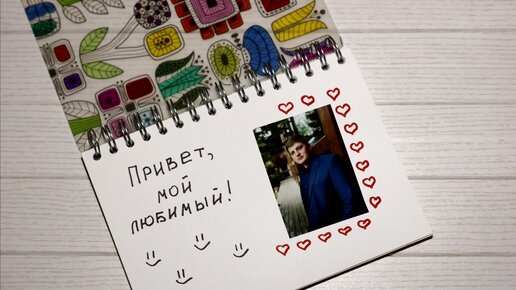 Привет,
мой
любимый!